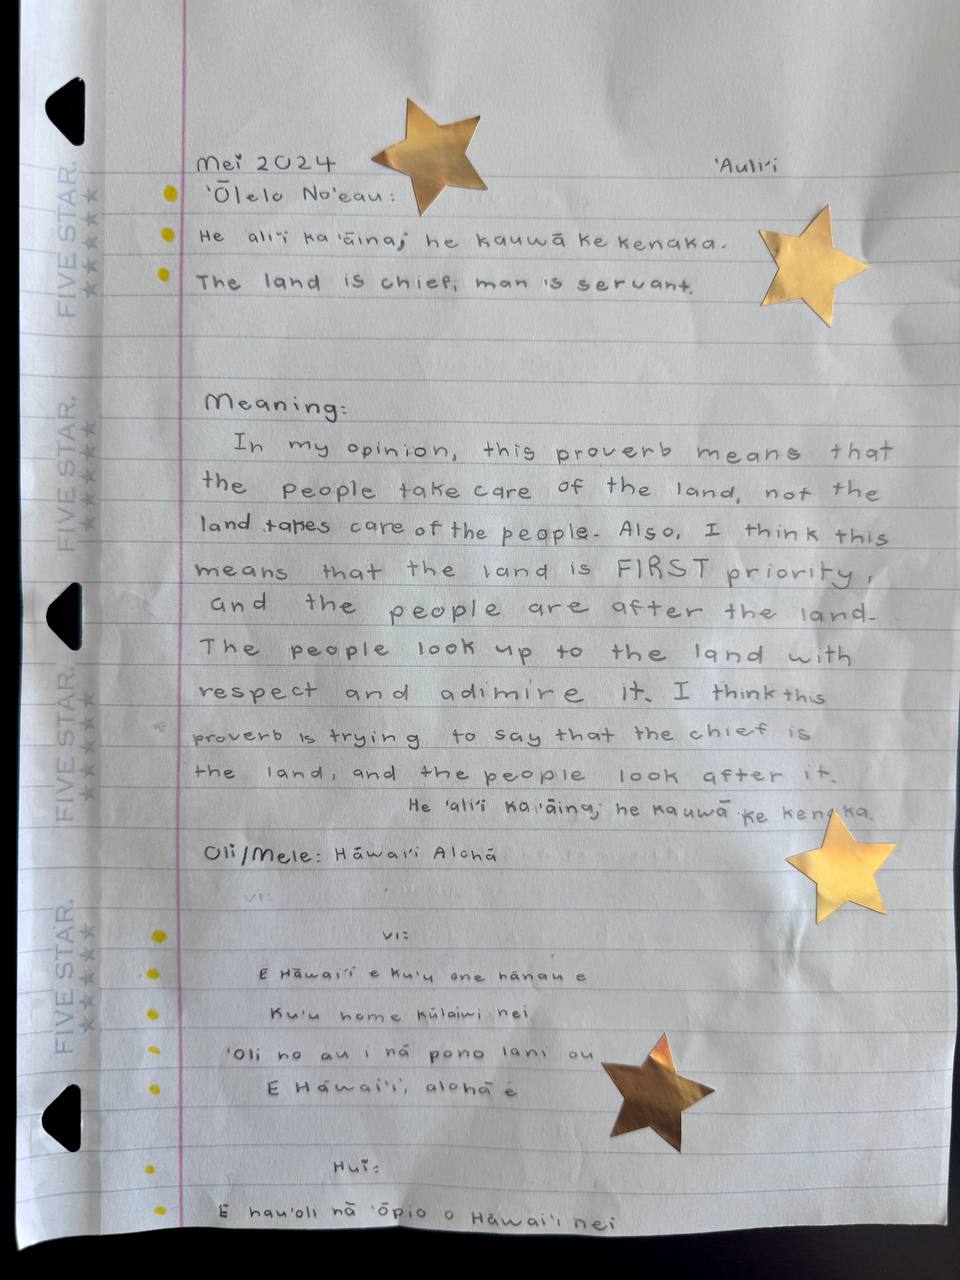 Mei 2024
'Auli'i
'Ōlelo No'eau:
He ali'i ka 'āina; he kauwā ke kenaka.
The land is chief; man is servant.
Meaning:
In my opinion, this proverb means that
the people take care of the land, not the
land takes care of the people. Also, I think this
means that the land is FIRST priority,
and the people are after the land.
The people look up to the land with
respect and adimire it. I think this
proverb is trying to say that the chief is
the land, and the people look after it.
He 'ali'i ka 'āina; he kauwā ke kenaka.
Oli/Mele: Hāwai'i Alohā
VI:
E Hāwai'i e ku'u one hānau e
Ku'u home kūlaiwi nei
'Oli no au i nā pono lani ou
E Hāwai'i, alohā e
Hui:
E hau'oli nā 'ōpio o Hāwai'i nei
FIVE STAR.
FIVE STAR.
FIVE STAR.
FIVE STAR.